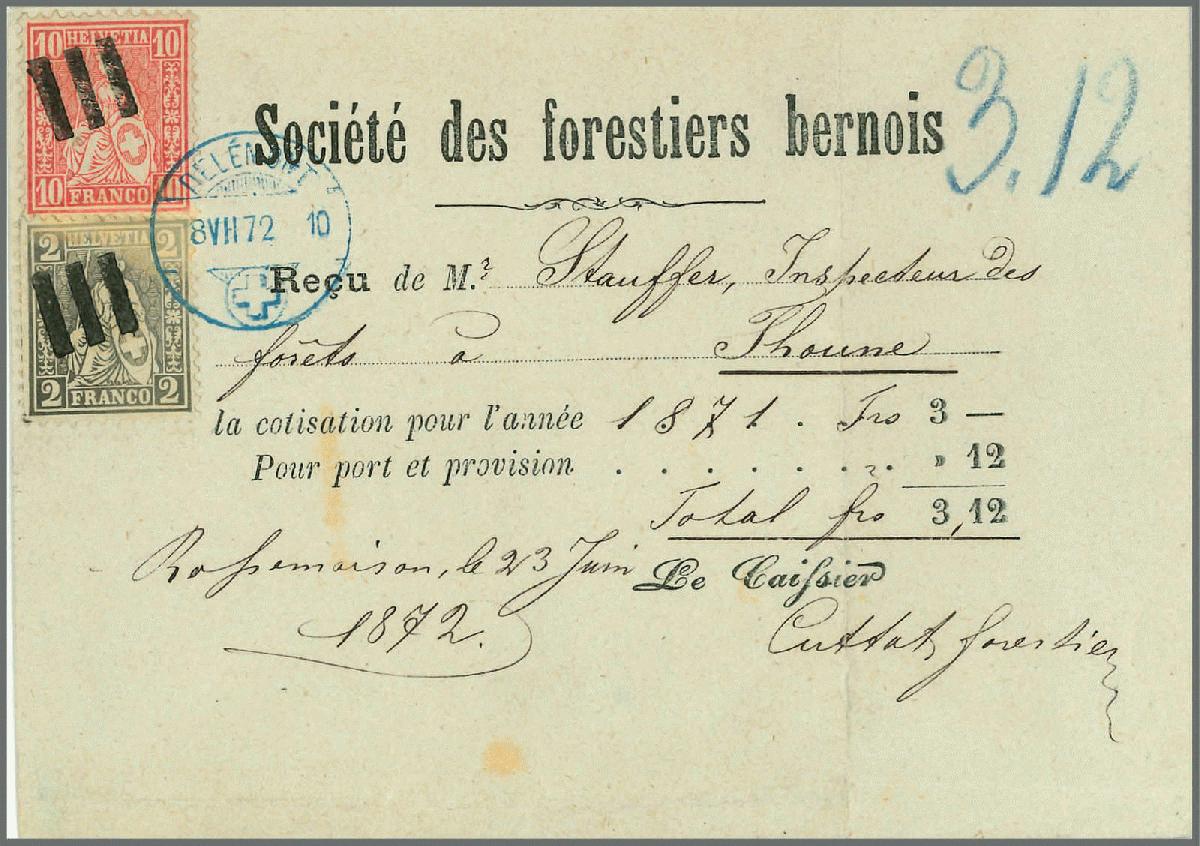 10 HELVETIA 10
10 FRANCO 10
2 HELVETIA 2
2 FRANCO 2
DELÉMONT
8 VII 72 10
3.12
Société des forestiers bernois
Reçu de M.r Stauffer, Inspecteur des
forêts à Thoune
la cotisation pour l'année 1871. Frs 3 —
Pour port et provision . . . . . . . . » 12
Total frs 3,12
Rossemaison, le 23 Juin Le Caissier
1872. Cuttat, forestier